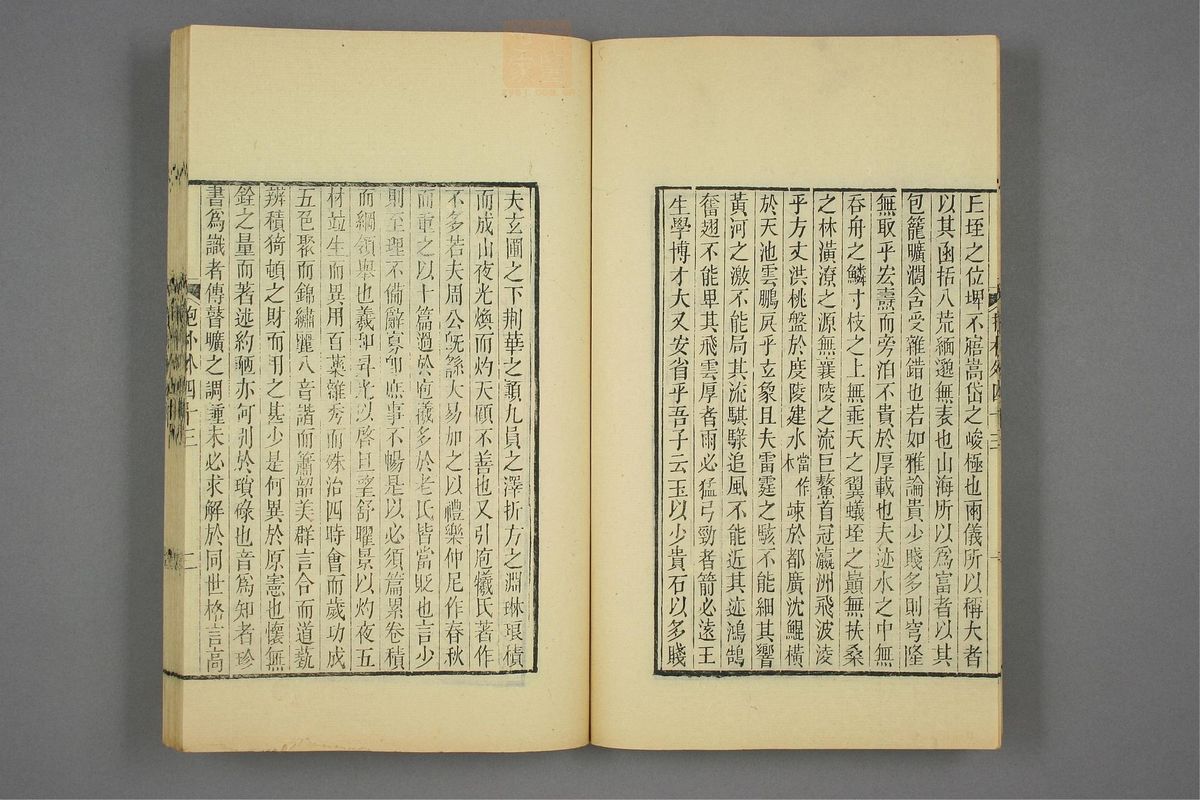 丘垤之位埤不寤嵩岱之峻極也兩儀所以稱大者
以其函括八荒緬邈無表也山海所以為富者以其
包籠曠濶含受雜錯也若如雅論貴少賤多則穹隆
無取乎宏燾而旁泊不貴於厚載也夫迹水之中無
吞舟之鱗寸枝之上無垂天之翼蟻垤之巔無扶桑
之林潢潦之源無襄陵之流巨鰲首冠瀛洲飛波淩
乎方丈洪桃盤於度陵建水當作木竦於都廣沈鯤橫
於天池雲鵬戾乎玄象且夫雷霆之駭不能細其響
黃河之激不能局其流騏驥追風不能近其迹鴻鵠
奮翅不能卑其飛雲厚者雨必猛弓勁者箭必遠王
生學博才大又安省乎吾子云玉以少貴石以多賤
夫玄圃之下荆華之巔九員之澤折方之淵琳琅積
而成山夜光煥而灼天顧不善也又引庖犧氏著作
不多若夫周公旣繇大易加之以禮樂仲尼作春秋
而重之以十篇過於庖犧多於老氏皆當貶也言少
則至理不備辭寡卽庶事不暢是以必須篇累卷積
而綱領舉也羲和昇光以啓旦望舒曜景以灼夜五
材竝生而異用百藥雜秀而殊治四時會而歲功成
五色聚而錦繡麗八音諧而簫韶美群言合而道蓺
辨積猗頓之財而用之甚少是何異於原憲也懷無
銓之量而著述約陋亦何別於瑣碌也音為知者珍
書為識者傳瞽曠之調鍾未必求解於同世格言高
抱朴外四十三
二